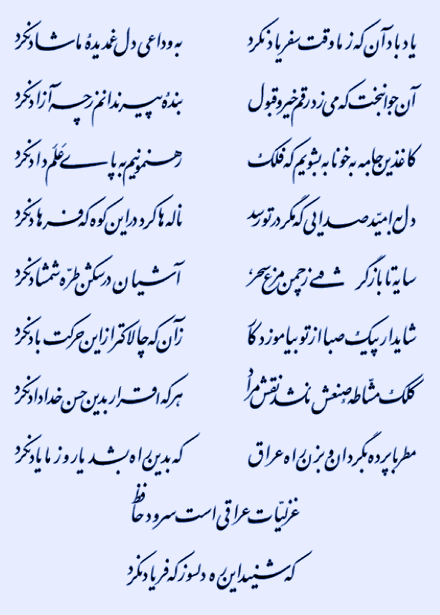 یاد باد آن که ز ما وقت سفر یاد نکرد به وداعی دل غمدیدهٔ ما شاد نکرد
آن جوانبخت که می‌زد رقم خیر و قبول بندهٔ پیر ندانم ز چه آزاد نکرد
کاغذین جامه به خونابه بشویم که فلک رهنمونیم به پای عَلَم داد نکرد
دل به امید صدایی که مگر در تو رسد ناله‌ها کرد در این کوه که فرهاد نکرد
سایه تا بازگرفتی ز چمن مرغ سحر آشیان در شکن طرّهٔ شمشاد نکرد
شاید ار پیک صبا از تو بیاموزد کار زان که چالاکتر از این حرکت باد نکرد
کلک مشّاطهٔ صنعش نکشد نقش مراد هر که اقرار بدین حسن خداداد نکرد
مطربا پرده بگردان و بزن راه عراق که بدین راه بشد یار و ز ما یاد نکرد
غزلیّات عراقی است سرود حافظ
که شنید این ره دلسوز که فریاد نکرد